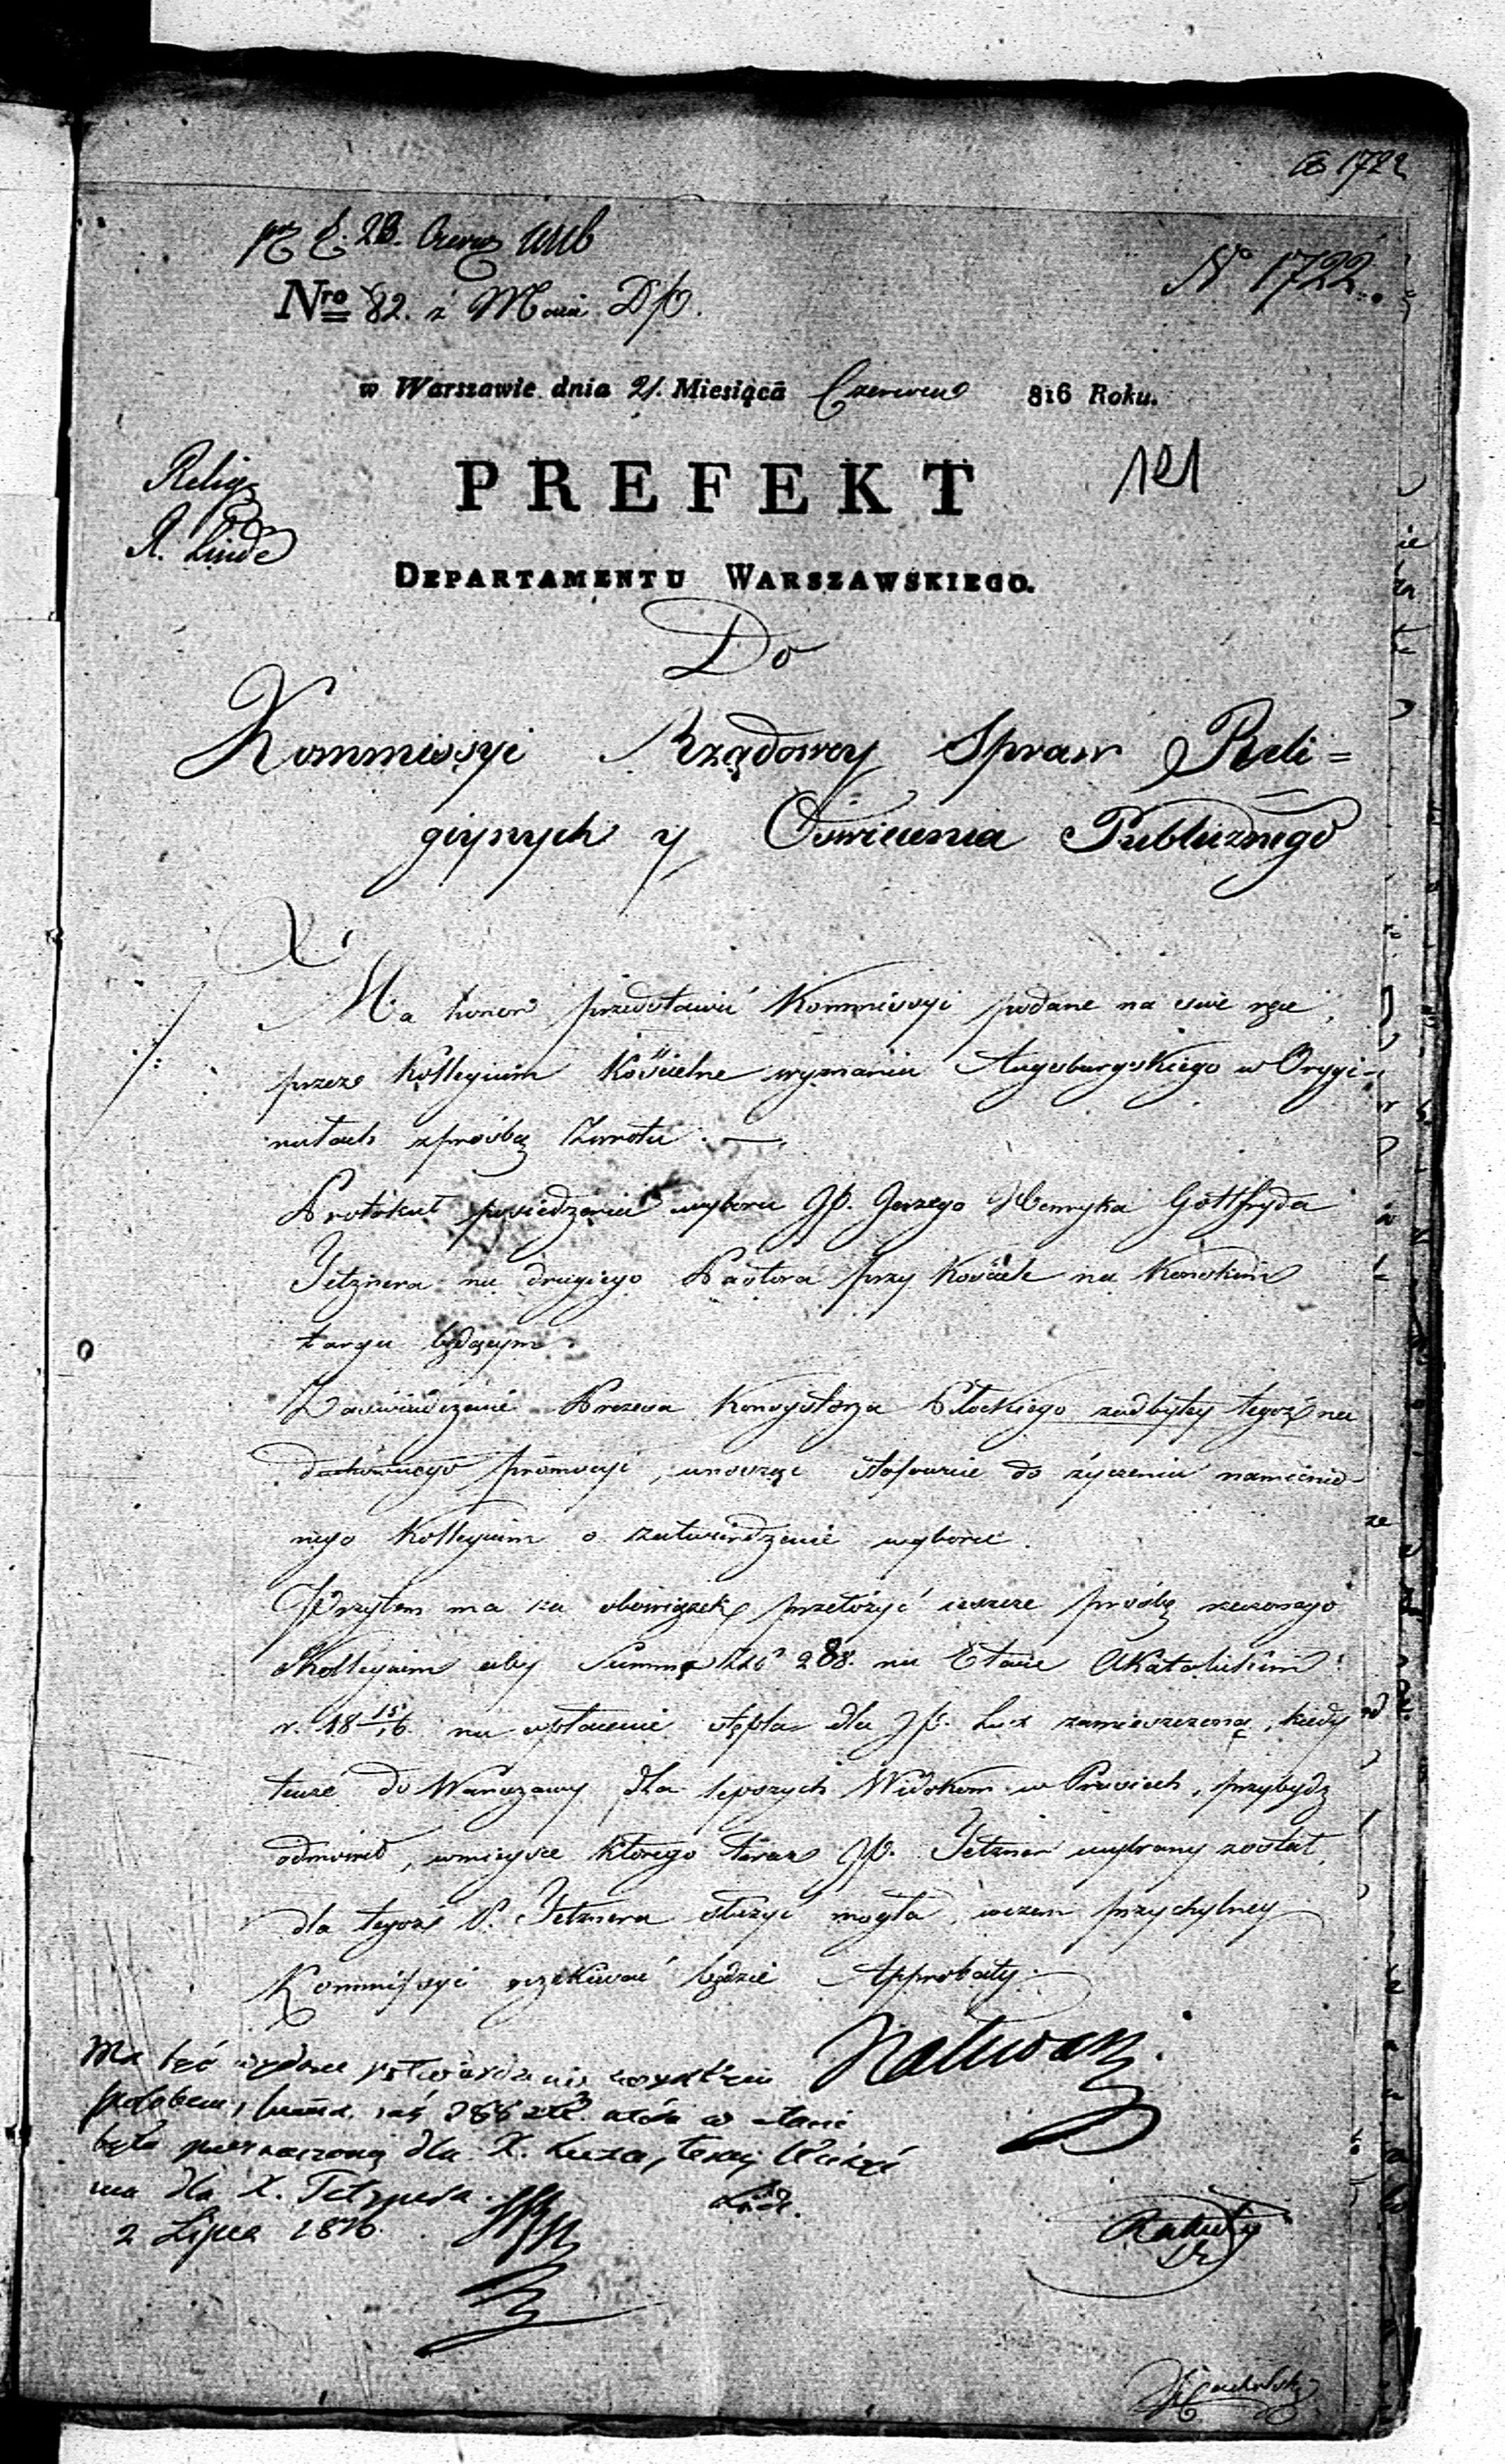 1722
No 1722
Nro 82. z Maia D/O.
w Warszawie dnia 21. Miesiąca Czerwca 816 Roku.
121
Relig
R. Linde
PREFEKT
DEPARTAMENTU WARSZAWSKIEGO.
Do
Kommissyi Rządowey Spraw Reli=
giynych y Oswiecenia Publicznego
Ma honor przedstawić Kommissyi podane na swe ręce,
przez Kollegium Kościelne wyznania Augsburgskiego w Orygi-
nałach z prośbą zwrotu.
Protokuł posiedzenia wyboru JP. Jerzego Henryka Gottfryda
Tetznera na drugiego Pastora przy Kościele na Konskim
targu będącym.
Zaświadczenie Prezesa Konsystorza Płockiego z odbytey tegoż na
duchownego promocyi, wnosząc stosownie do życzenia namienio-
nego Kollegium o zatwierdzenie wyboru.
Przytem ma za obowiązek przełożyć ieszcze prośbę rzeczonego
Kollegium aby Summa 288. na Etacie Akatolickim
r. 18 15/16 na opłacenie stępla dla JP. Lux zamieszczona, kiedy
tenże do Warszawy dla lepszych Widokow w Prusiech, przybydz
odmowił, w mieysce ktorego teraz JP. Tetzner wybrany został,
dla tegoż P. Tetznera służyć mogła, w czem przychylney
Kommissyi oczekiwać będzie Approbaty.
Nakwaski
Ma być wydane potwierdzenie
288 w etacie
była przeznaczona dla X. Luxa, teraz
ma dla X. Tetznera.
2 Lipca 1816.
Linde.